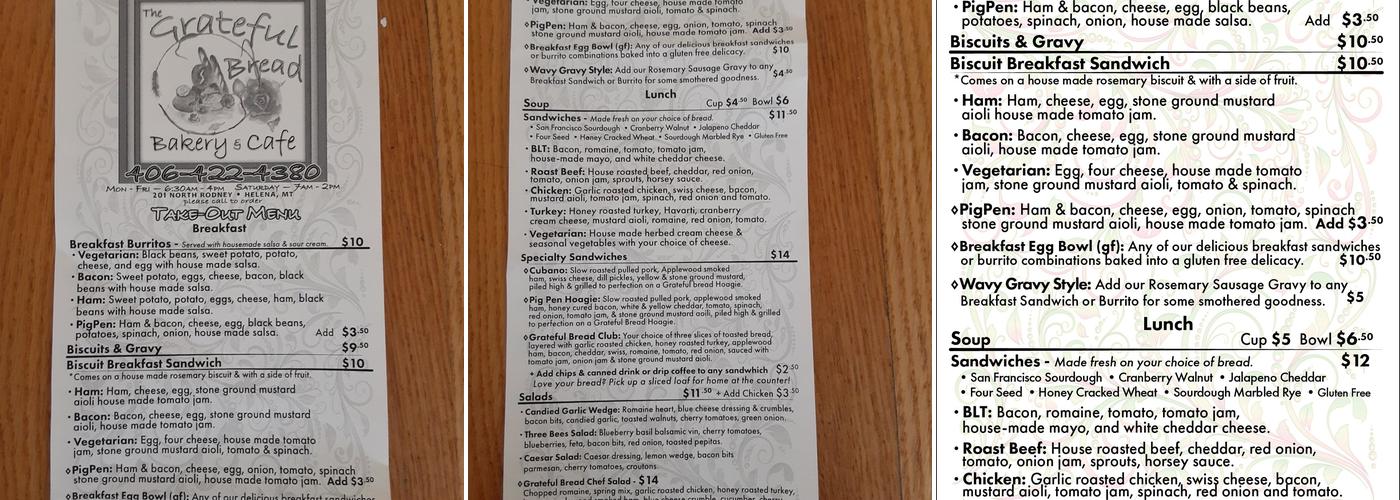 The
Grateful
Bread
Bakery & Cafe
406-422-4380
Mon - Fri - 6:30am - 4pm Saturday - 7am - 2pm
201 NORTH RODNEY • HELENA, MT
please call to order
TAKE-OUT MENU
Breakfast
Breakfast Burritos - Served with housemade salsa & sour cream. $10
• Vegetarian: Black beans, sweet potato, potato,
cheese, and egg with house made salsa.
• Bacon: Sweet potato, eggs, cheese, bacon, black
beans with house made salsa.
• Ham: Sweet potato, potato, eggs, cheese, ham, black
beans with house made salsa.
• PigPen: Ham & bacon, cheese, egg, black beans,
potatoes, spinach, onion, house made salsa. Add $3.50
Biscuits & Gravy $9.50
Biscuit Breakfast Sandwich $10
*Comes on a house made rosemary biscuit & with a side of fruit.
• Ham: Ham, cheese, egg, stone ground mustard
aioli house made tomato jam.
• Bacon: Bacon, cheese, egg, stone ground mustard
aioli, house made tomato jam.
• Vegetarian: Egg, four cheese, house made tomato
jam, stone ground mustard aioli, tomato & spinach.
◊PigPen: Ham & bacon, cheese, egg, onion, tomato, spinach
stone ground mustard aioli, house made tomato jam. Add $3.50
◊Breakfast Egg Bowl (gf): Any of our delicious breakfast sandwiches
Vegetarian: Egg, four cheese, house made tomato
jam, stone ground mustard aioli, tomato & spinach.
◊PigPen: Ham & bacon, cheese, egg, onion, tomato, spinach
stone ground mustard aioli, house made tomato jam. Add $3.50
◊Breakfast Egg Bowl (gf): Any of our delicious breakfast sandwiches
or burrito combinations baked into a gluten free delicacy. $10
◊Wavy Gravy Style: Add our Rosemary Sausage Gravy to any
Breakfast Sandwich or Burrito for some smothered goodness. $4.50
Lunch
Soup Cup $4.50 Bowl $6
Sandwiches - Made fresh on your choice of bread. $11.50
• San Francisco Sourdough • Cranberry Walnut • Jalapeno Cheddar
• Four Seed • Honey Cracked Wheat • Sourdough Marbled Rye • Gluten Free
• BLT: Bacon, romaine, tomato, tomato jam,
house-made mayo, and white cheddar cheese.
• Roast Beef: House roasted beef, cheddar, red onion,
tomato, onion jam, sprouts, horsey sauce.
• Chicken: Garlic roasted chicken, swiss cheese, bacon,
mustard aioli, tomato jam, spinach, red onion and tomato.
• Turkey: Honey roasted turkey, Havarti, cranberry
cream cheese, mustard aioli, romaine, red onion, tomato.
• Vegetarian: House made herbed cream cheese &
seasonal vegetables with your choice of cheese.
Specialty Sandwiches $14
◊Cubano: Slow roasted pulled pork, Applewood smoked
ham, swiss cheese, dill pickles, yellow & stone ground mustard,
piled high & grilled to perfection on a Grateful Bread Hoagie.
◊Pig Pen Hoagie: Slow roasted pulled pork, applewood smoked
ham, honey cured bacon, white & yellow cheddar, tomato, spinach,
red onion, tomato jam, & stone ground mustard aioli, piled high & grilled
to perfection on a Grateful Bread Hoagie.
◊Grateful Bread Club: Your choice of three slices of toasted bread,
layered with garlic roasted chicken, honey roasted turkey, applewood
ham, bacon, cheddar, swiss, romaine, tomato, red onion, sauced with
tomato jam, onion jam & stone ground mustard aioli.
+ Add chips & canned drink or drip coffee to any sandwich $2.50
Love your bread? Pick up a sliced loaf for home at the counter!
Salads $11.50 + Add Chicken $3.50
• Candied Garlic Wedge: Romaine heart, blue cheese dressing & crumbles,
bacon bits, candied garlic, toasted walnuts, cherry tomatoes, green onion.
• Three Bees Salad: Blueberry basil balsamic vin, cherry tomatoes,
blueberries, feta, bacon bits, red onion, toasted pepitas.
• Caesar Salad: Caesar dressing, lemon wedge, bacon bits
parmesan, cherry tomatoes, croutons
◊Grateful Bread Chef Salad - $14
Chopped romaine, spring mix, garlic roasted chicken, honey roasted turkey,
• PigPen: Ham & bacon, cheese, egg, black beans,
potatoes, spinach, onion, house made salsa. Add $3.50
Biscuits & Gravy $10.50
Biscuit Breakfast Sandwich $10.50
*Comes on a house made rosemary biscuit & with a side of fruit.
• Ham: Ham, cheese, egg, stone ground mustard
aioli house made tomato jam.
• Bacon: Bacon, cheese, egg, stone ground mustard
aioli, house made tomato jam.
• Vegetarian: Egg, four cheese, house made tomato
jam, stone ground mustard aioli, tomato & spinach.
◊PigPen: Ham & bacon, cheese, egg, onion, tomato, spinach
stone ground mustard aioli, house made tomato jam. Add $3.50
◊Breakfast Egg Bowl (gf): Any of our delicious breakfast sandwiches
or burrito combinations baked into a gluten free delicacy. $10.50
◊Wavy Gravy Style: Add our Rosemary Sausage Gravy to any
Breakfast Sandwich or Burrito for some smothered goodness. $5
Lunch
Soup Cup $5 Bowl $6.50
Sandwiches - Made fresh on your choice of bread. $12
• San Francisco Sourdough • Cranberry Walnut • Jalapeno Cheddar
• Four Seed • Honey Cracked Wheat • Sourdough Marbled Rye • Gluten Free
• BLT: Bacon, romaine, tomato, tomato jam,
house-made mayo, and white cheddar cheese.
• Roast Beef: House roasted beef, cheddar, red onion,
tomato, onion jam, sprouts, horsey sauce.
• Chicken: Garlic roasted chicken, swiss cheese, bacon,
mustard aioli, tomato jam, spinach, red onion and tomato.